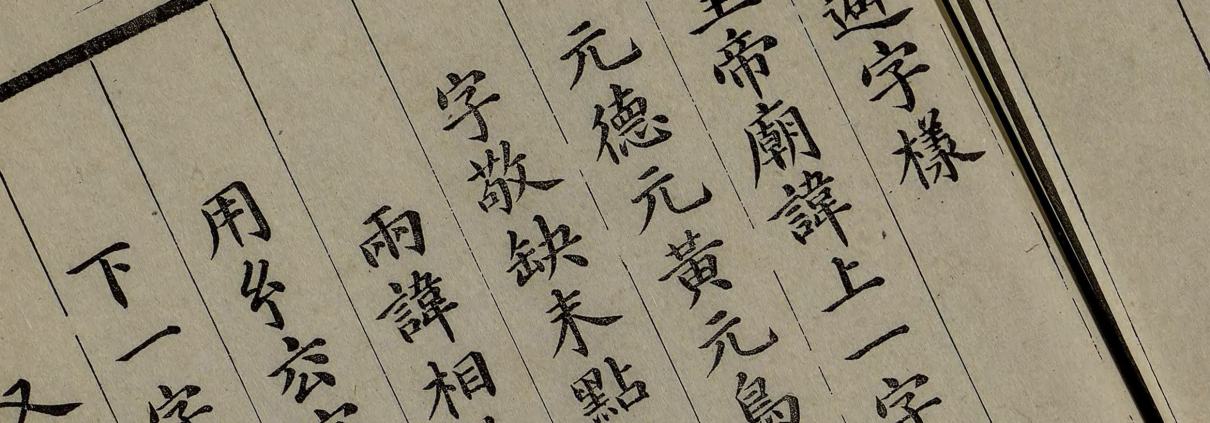 避字樣
皇帝廟諱上一字
元德元黃元鳥
字敬缺末點
兩諱相
用
下一字
又